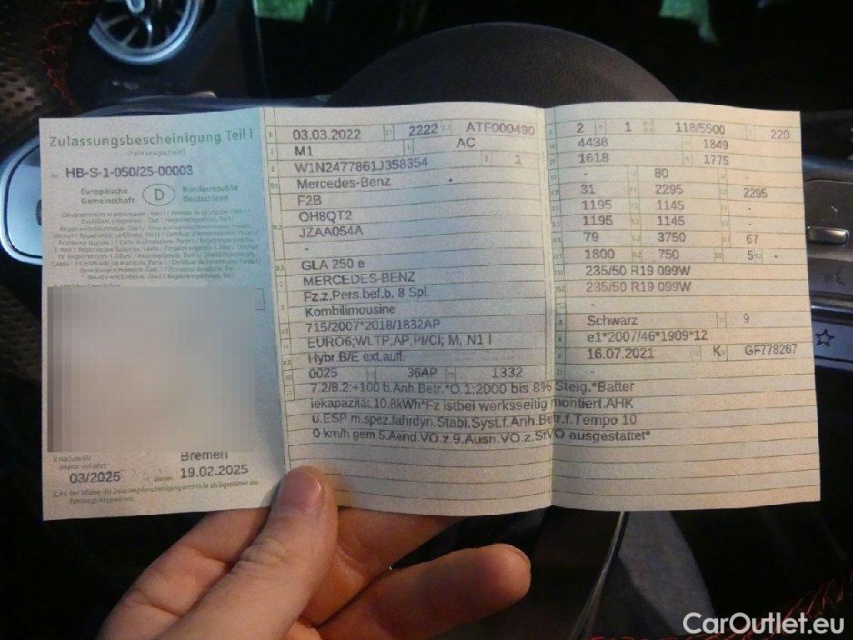 Zulassungsbescheinigung Teil I
(Fahrzeugschein)
Nr. HB-S-1-050/25-00003
Europäische Gemeinschaft
D
Bundesrepublik Deutschland
03/2025
Bremen
19.02.2025
03.03.2022 2222 ATF000490
M1 AC
W1N2477861J358354 1
Mercedes-Benz
F2B
OH8QT2
JZAA054A
-
GLA 250 e
MERCEDES-BENZ
Fz.z.Pers.bef.b. 8 Spl.
Kombilimousine
715/2007*2018/1832AP
EURO6;WLTP,AP,PI/CI; M, N1 I
Hybr.B/E ext.aufl.
0025 36AP 1332
2 1 118/5500 220
4438 1849
1618 1775
- 80
31 2295 2295
1195 1145
1195 1145
79 3750 67
1800 750 5 -
235/50 R19 099W
235/50 R19 099W
-
-
Schwarz 9
e1*2007/46*1909*12
16.07.2021 K GF778267
7.2/8.2:+100 b.Anh.Betr.*O.1:2000 bis 8% Steig.*Batter
iekapazität:10.8kWh*Fz istbei werksseitig montiert.AHK
u.ESP m.spez.fahrdyn.Stabi.Syst.f.Anh.Betr.f.Tempo 10
0 km/h gem 5.Aend.VO.z.9.Ausn.VO.z.StVO ausgestattet*
CarOutlet.eu